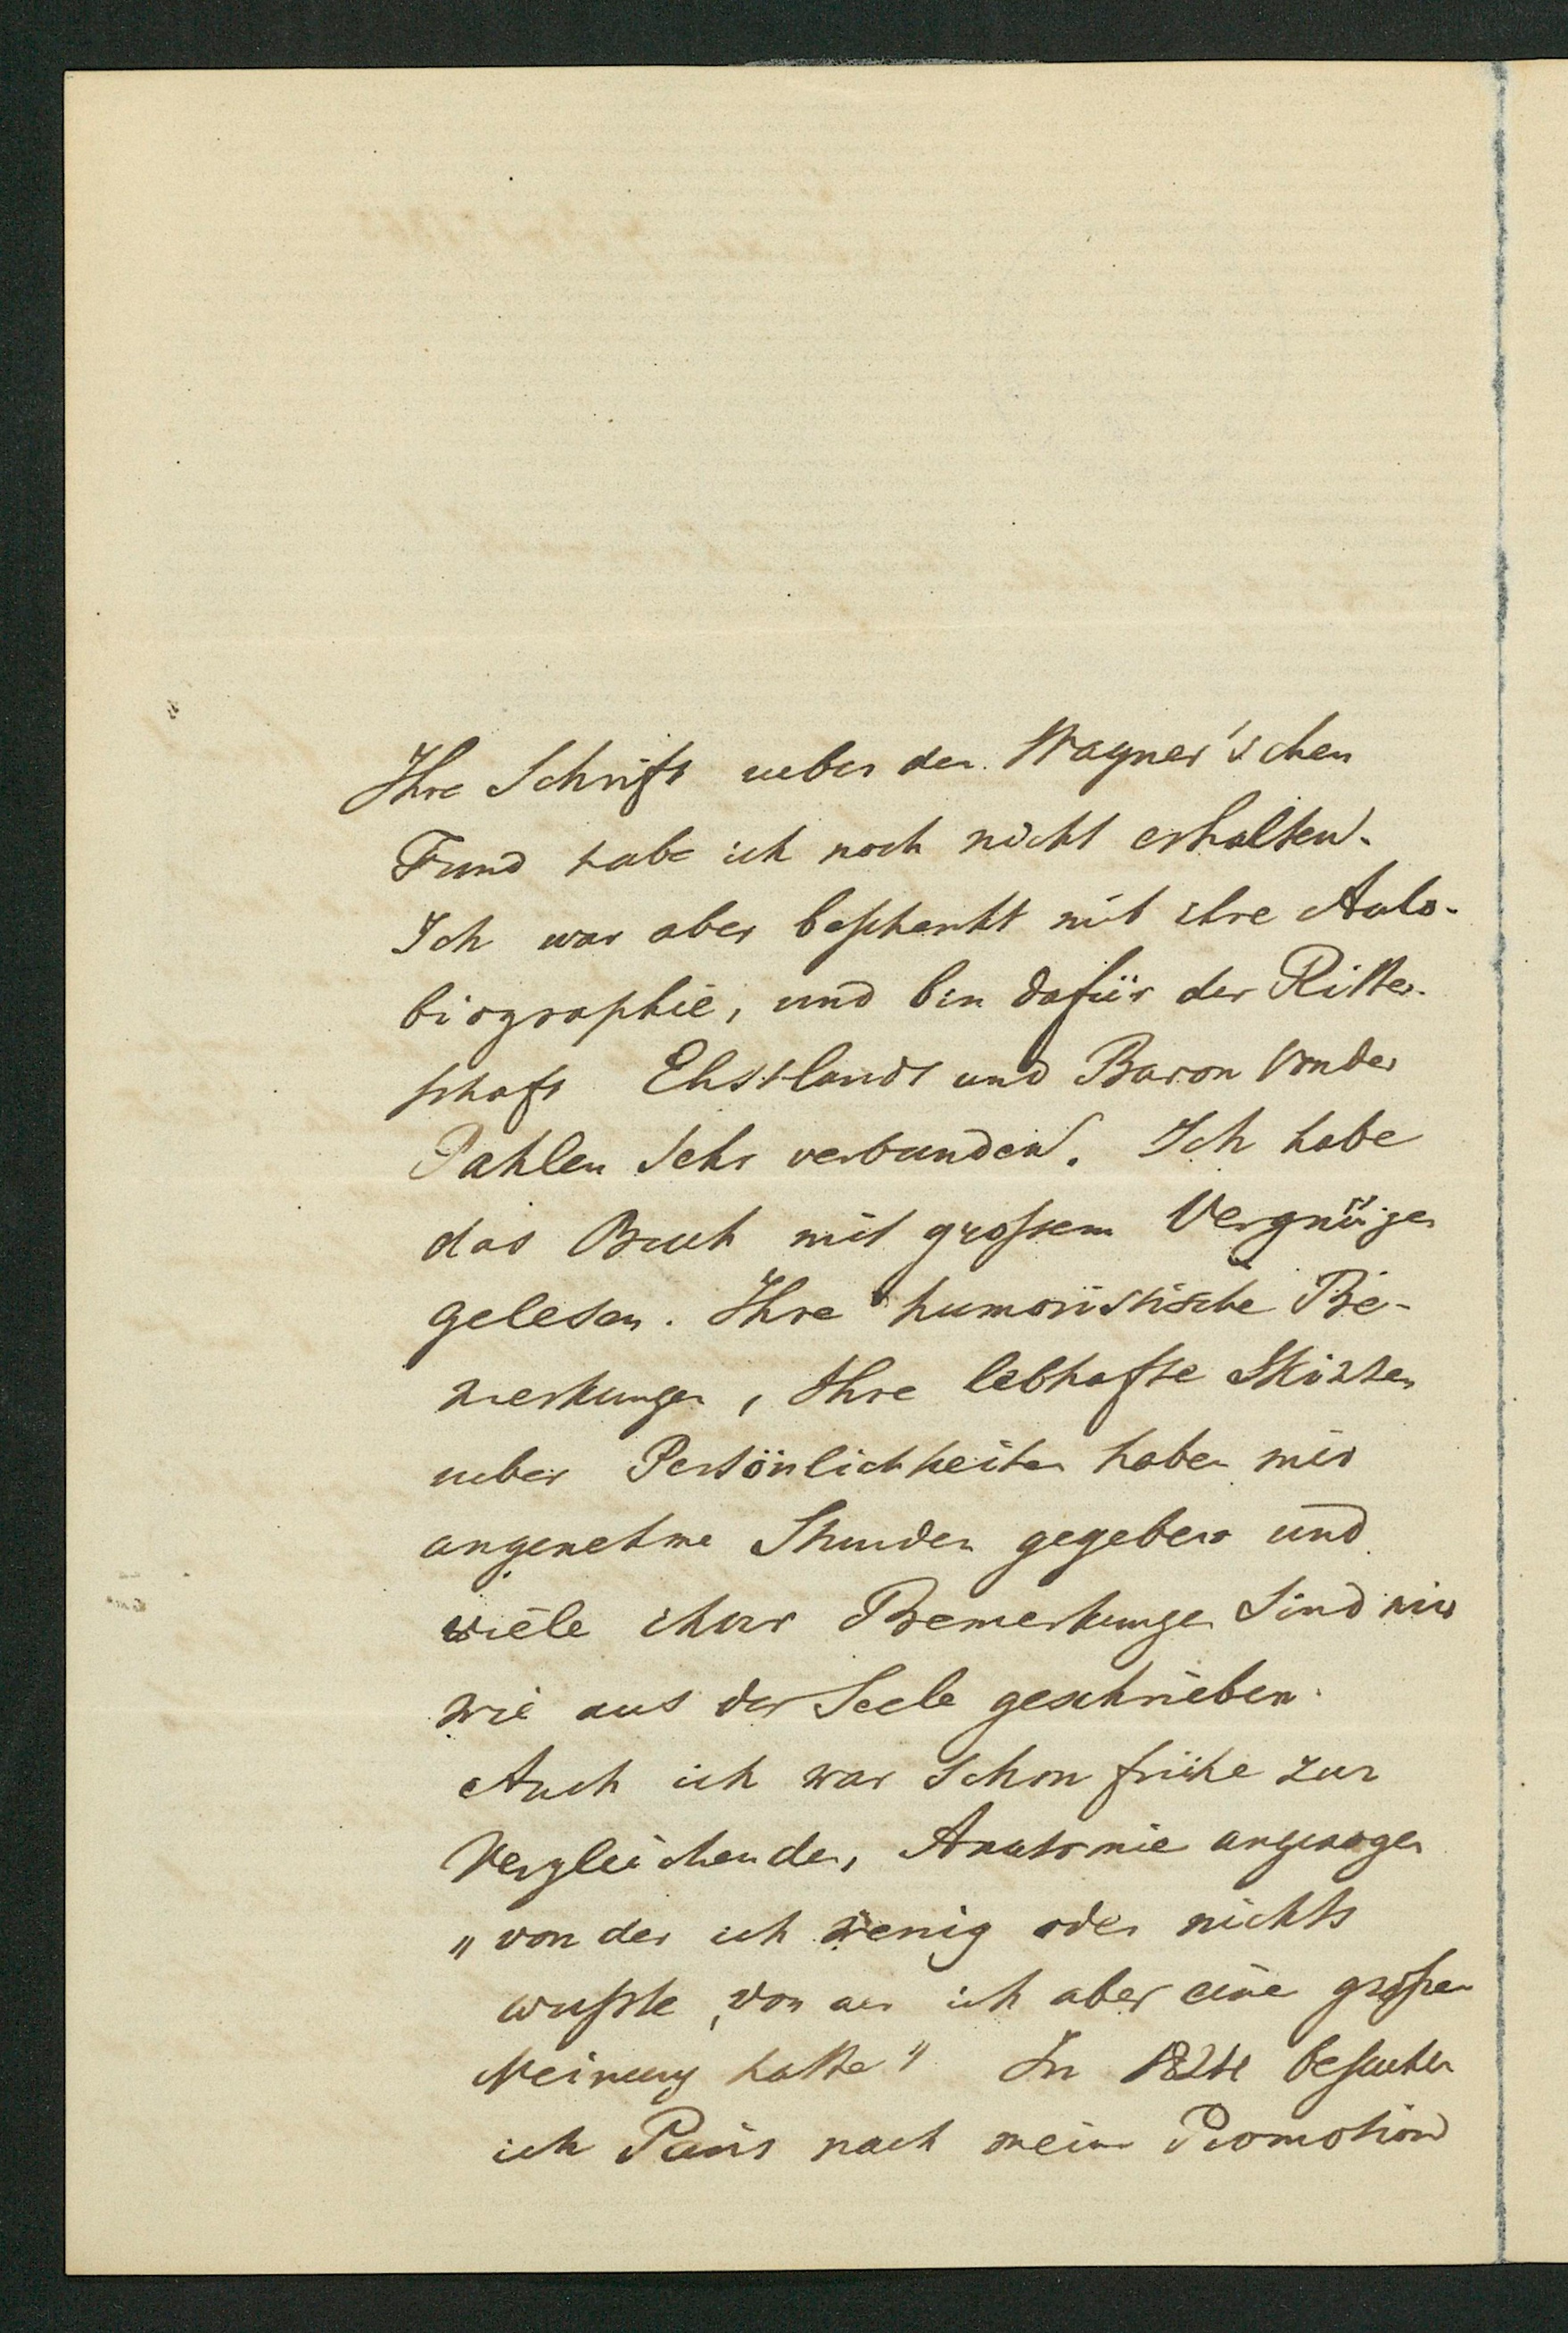 Ihre Schrift ueber den Wagner'schen
Fund habe ich noch nicht erhalten.
Ich war aber beschenkt mit ihre Auto-
biographie, und bin dafür der Ritter-
schaft Ehstlands und Baron von der
Pahlen sehr verbunden. Ich habe
das Buch mit grossem Vergnügen
gelesen. Ihre humoristische Be-
merkungen, Ihre lebhafte Skizzen
ueber Persönlichkeiten haben mir
angenehme Stunden gegeben und
viele ihrer Bemerkungen sind mir
wie aus der Seele geschrieben.
Auch ich war schon frühe zur
Vergleichenden Anatomie angezogen
"von der ich wenig oder nichts
wusste, von der ich aber eine grosse
Meinung hatte" In 1824 besuchte
ich Paris nach meine Promotion